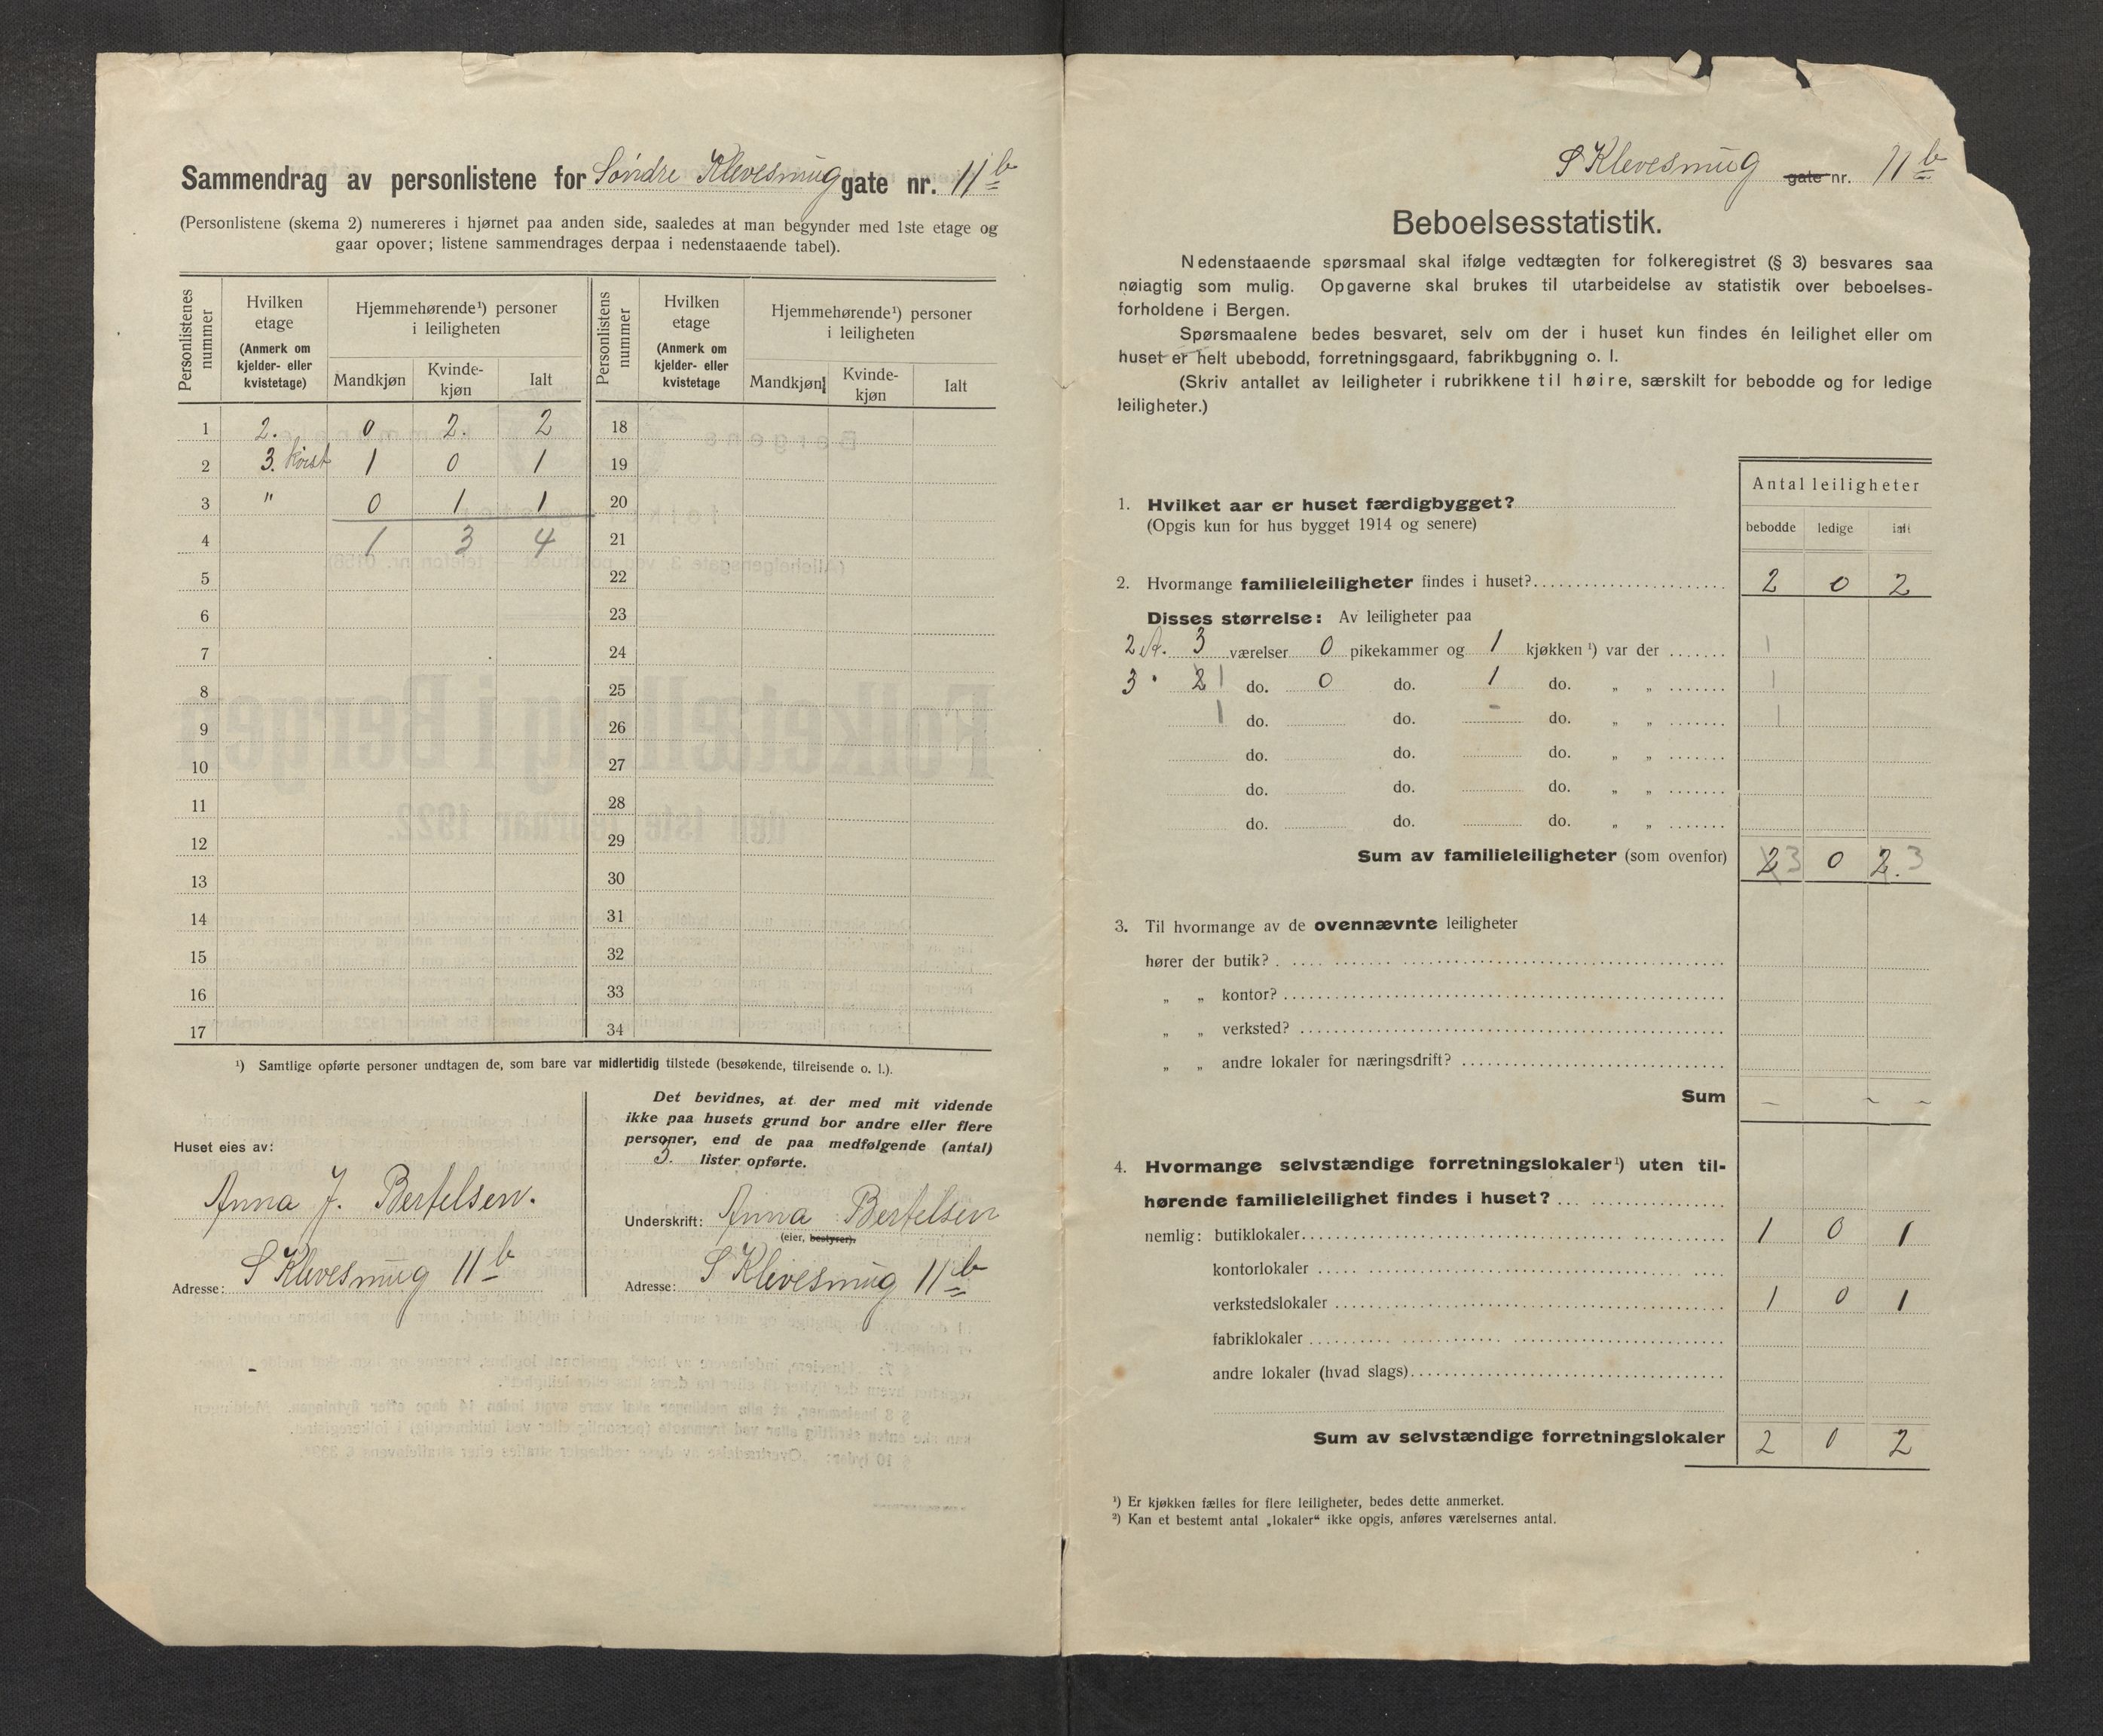 Sammendrag av personlistene for Söndre Klevesmug gate nr. 11 b
(Personlistene (skema 2) numereres i hjørnet paa anden side, saaledes at man begynder med 1ste etage og
gaar opover; listene sammendrages derpaa i nedenstaaende tabel).
Personlistenes nummer
Hvilken etage (Anmerk om kjelder- eller kvistetage)
Hjemmehørende¹) personer i leiligheten
Mandkjøn Kvinde-kjøn Ialt
Personlistens nummer
Hvilken etage (Anmerk om kjelder- eller kvistetage
Hjemmehørende¹) personer i leiligheten
Mandkjøn Kvinde-kjøn Ialt
1 2. 0 2. 2 18
2 3. 1 0 1 19
3 " 0 1 1 20
4 1 3 4 21
5 22
6 23
7 24
8 25
9 26
10 27
11 28
12 29
13 30
14 31
15 32
16 33
17 34
¹) Samtlige opførte personer undtagen de, som bare var midlertidig tilstede (besøkende, tilreisende o. l.).
Huset eies av:
Anna J. Bertelsen.
Adresse: S Klevesmug 11 b
Det bevidnes, at der med mit vidende
ikke paa husets grund bor andre eller flere
personer, end de paa medfølgende (antal)
3. lister opførte.
Underskrift: Anna Bertelsen
(eier, bestyrer).
Adresse: S Klevesmug 11 b
S Klevesmug gate nr. 11 b
Beboelsesstatistik.
Nedenstaaende spørsmaal skal ifølge vedtægten for folkeregistret (§ 3) besvares saa
nøiagtig som mulig. Opgaverne skal brukes til utarbeidelse av statistik over beboelses-
forholdene i Bergen.
Spørsmaalene bedes besvaret, selv om der i huset kun findes én leilighet eller om
huset er helt ubebodd, forretningsgaard, fabrikbygning o. l.
(Skriv antallet av leiligheter i rubrikkene til høire, særskilt for bebodde og for ledige
leiligheter.)
Antal leiligheter
bebodde ledige ialt
1. Hvilket aar er huset færdigbygget?
(Opgis kun for hus bygget 1914 og senere)
2. Hvormange familieleiligheter findes i huset? 2 0 2
Disses størrelse: Av leiligheter paa
3 værelser 0 pikekammer og 1 kjøkken ¹) var der 1
3 2 1 do. 0 do. 1 do. „ „ 1
1 do. do. - do. „ „ 1
do. do. do. „ „
do. do. do. „ „
do. do. do. „ „
Sum av familieleiligheter (som ovenfor) 2 3 0 2. 3
3. Til hvormange av de ovennævnte leiligheter
hører der butik?
„ „ kontor?
„ „ verksted?
„ „ andre lokaler for næringsdrift?
Sum - - -
4. Hvormange selvstændige forretningslokaler¹) uten til-
hørende familieleilighet findes i huset?
nemlig: butiklokaler 1 0 1
kontorlokaler
verkstedslokaler 1 0 1
fabriklokaler
andre lokaler (hvad slags)
Sum av selvstændige forretningslokaler 2 0 2
¹) Er kjøkken fælles for flere leiligheter, bedes dette anmerket.
²) Kan et bestemt antal „lokaler“ ikke opgis, anføres værelsernes antal.